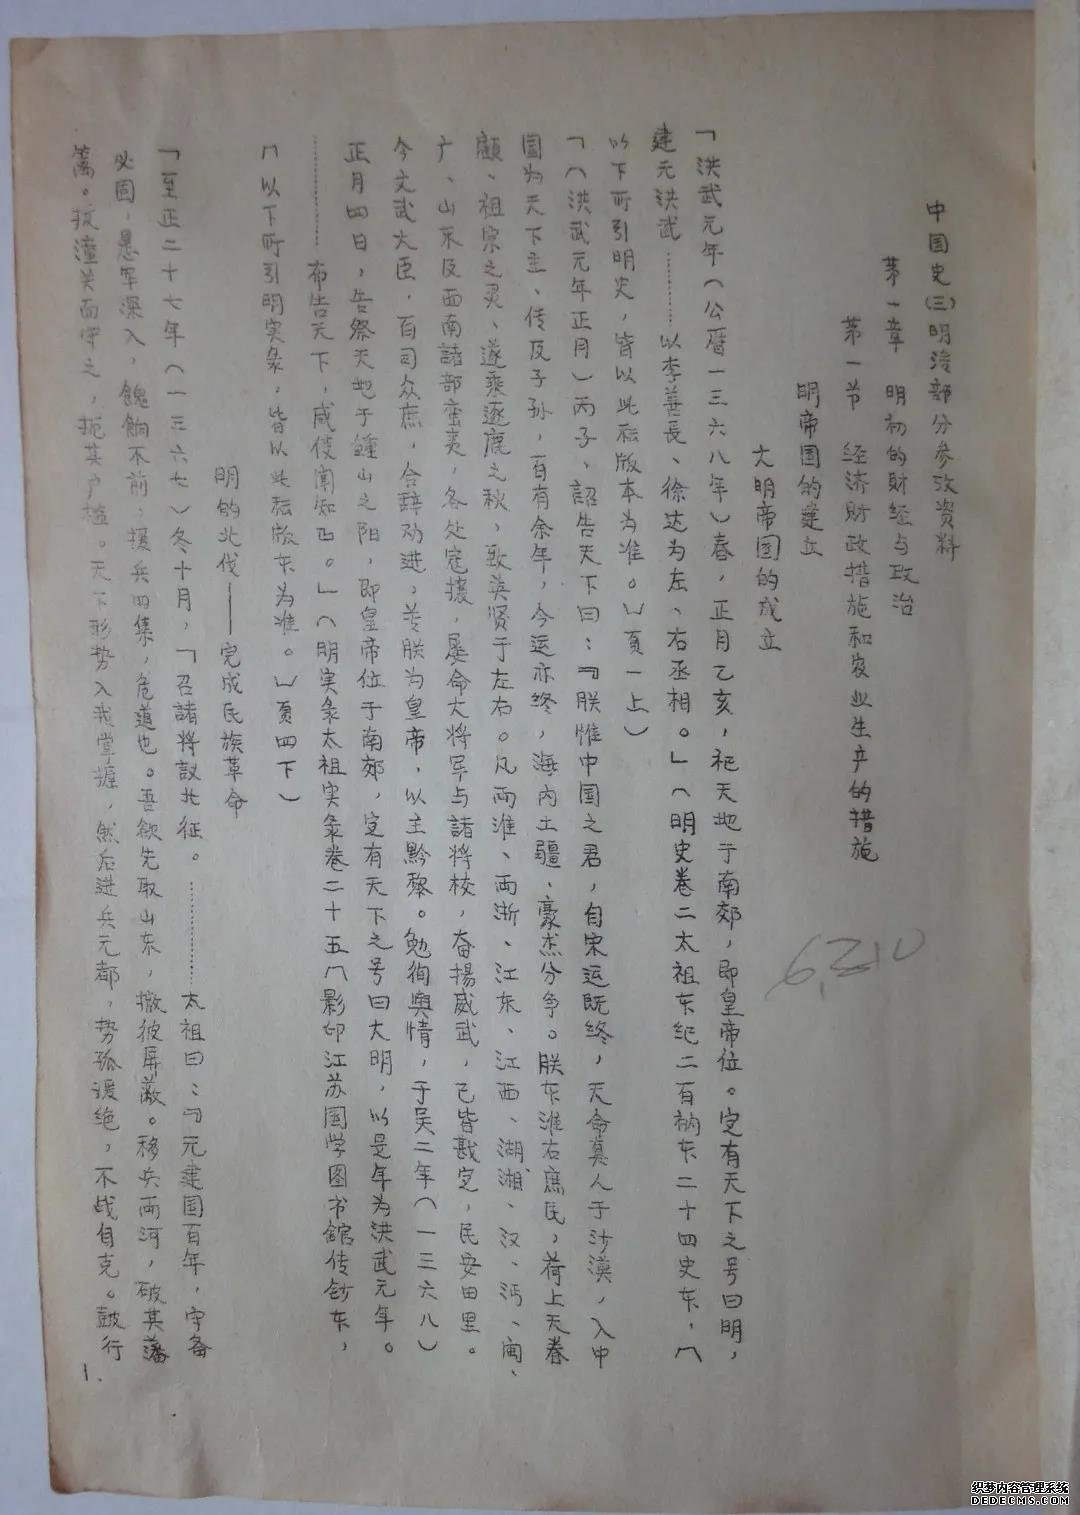 中国史(三)明清部分参考资料
第一章　明初的财经与政治
第一节　经济财政措施和农业生产的措施
明帝国的建立
大明帝国的成立
「洪武元年(公历一三六八年)春，正月乙亥，祀天地于南郊，即皇帝位。定有天下之号曰明，
建元洪武………以李善長、徐达为左、右丞相。」(明史卷二太祖本纪二百衲本二十四史本，〔
以下所引明史，皆以此种版本为准。〕頁一上)
「(洪武元年正月)丙子、詔告天下曰：『朕惟中国之君，自宋运既终，天命真人于沙漠，入中
国为天下主、传及子孙，百有余年，今运亦终，海内土疆、豪杰分争。朕本淮右庶民，荷上天眷
顧、祖宗之灵、遂乘逐鹿之秋，致英贤于左右。凡两淮、两浙、江东、江西、湖湘、汉、沔、闽、
广、山东及西南諸部蛮夷，各处寇攘，屡命大将军与諸将校，奋揚威武，已皆戡定，民安田里。
今文武大臣，百司众庶，合辞劝进，尊朕为皇帝，以主黔黎。勉徇輿情，于吴二年(一三六八)
正月四日，告祭天地于鍾山之阳，即皇帝位于南郊，定有天下之号曰大明，以是年为洪武元年。
………布告天下，咸使闻知』。」(明实彔太祖实彔卷二十五〔影印江苏国学图书館传钞本，
〔以下所引明实彔，皆以此种版本为准。〕頁四下)
明的北伐——完成民族革命
「至正二十七年(一三六七)冬十月，「召諸将議北征。………太祖曰：『元建国百年，守备
必固，悬军深入，餽餉不前，援兵四集，危道也。吾欲先取山东，撤彼屏蔽。移兵两河，破其藩
篱。拔潼关而守之，扼其户槛。天下形势入我掌握，然后进兵元都，势孤援绝，不战自克。鼓行
1.
6,210
织梦内容管理系统
DEDECMS.COM